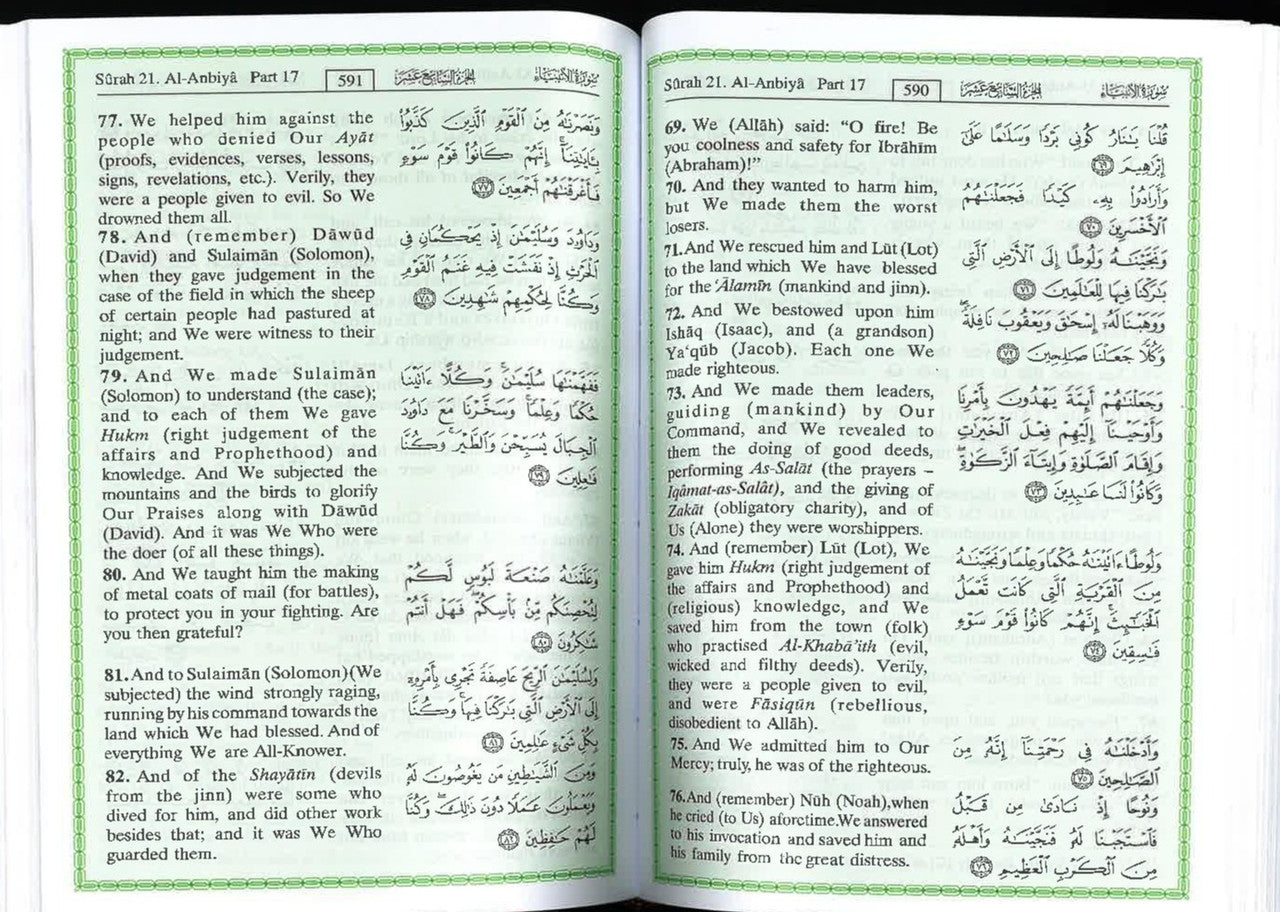 Sûrah 21. Al-Anbiyâ Part 17 590 الجزء السابع عشر سورة الأنبياء
69. We (Allâh) said: “O fire! Be
you coolness and safety for Ibrâhîm
(Abraham)!”
70. And they wanted to harm him,
but We made them the worst
losers.
71.And We rescued him and Lût (Lot)
to the land which We have blessed
for the ‘Âlamîn (mankind and jinn).
72. And We bestowed upon him
Ishâq (Isaac), and (a grandson)
Ya‘qûb (Jacob). Each one We
made righteous.
73. And We made them leaders,
guiding (mankind) by Our
Command, and We revealed to
them the doing of good deeds,
performing As-Salât (the prayers –
Iqâmat-as-Salât), and the giving of
Zakât (obligatory charity), and of
Us (Alone) they were worshippers.
74. And (remember) Lût (Lot), We
gave him Hukm (right judgement of
the affairs and Prophethood) and
(religious) knowledge, and We
saved him from the town (folk)
who practised Al-Khabâ’ith (evil,
wicked and filthy deeds). Verily,
they were a people given to evil,
and were Fâsiqûn (rebellious,
disobedient to Allâh).
75. And We admitted him to Our
Mercy; truly, he was of the righteous.
76.And (remember) Nûh (Noah),when
he cried (to Us) aforetime.We answered
to his invocation and saved him and
his family from the great distress.
قُلْنَا يَٰنَارُ كُونِى بَرْدًا وَسَلَٰمًا عَلَىٰٓ
إِبْرَٰهِيمَ ٦٩
وَأَرَادُوا۟ بِهِۦ كَيْدًا فَجَعَلْنَٰهُمُ
ٱلْأَخْسَرِينَ ٧٠
وَنَجَّيْنَٰهُ وَلُوطًا إِلَى ٱلْأَرْضِ ٱلَّتِى
بَٰرَكْنَا فِيهَا لِلْعَٰلَمِينَ ٧١
وَوَهَبْنَا لَهُۥٓ إِسْحَٰقَ وَيَعْقُوبَ نَافِلَةً ۖ
وَكُلًّا جَعَلْنَا صَٰلِحِينَ ٧٢
وَجَعَلْنَٰهُمْ أَئِمَّةً يَهْدُونَ بِأَمْرِنَا
وَأَوْحَيْنَآ إِلَيْهِمْ فِعْلَ ٱلْخَيْرَٰتِ
وَإِقَامَ ٱلصَّلَوٰةِ وَإِيتَآءَ ٱلزَّكَوٰةِ ۖ
وَكَانُوا۟ لَنَا عَٰبِدِينَ ٧٣
وَلُوطًا ءَاتَيْنَٰهُ حُكْمًا وَعِلْمًا وَنَجَّيْنَٰهُ
مِنَ ٱلْقَرْيَةِ ٱلَّتِى كَانَت تَّعْمَلُ
ٱلْخَبَٰٓئِثَ ۗ إِنَّهُمْ كَانُوا۟ قَوْمَ سَوْءٍ
فَٰسِقِينَ ٧٤
وَأَدْخَلْنَٰهُ فِى رَحْمَتِنَآ إِنَّهُۥ مِنَ
ٱلصَّٰلِحِينَ ٧٥
وَنُوحًا إِذْ نَادَىٰ مِن قَبْلُ
فَٱسْتَجَبْنَا لَهُۥ فَنَجَّيْنَٰهُ وَأَهْلَهُۥ
مِنَ ٱلْكَرْبِ ٱلْعَظِيمِ ٧٦
Sûrah 21. Al-Anbiyâ Part 17 591 الجزء السابع عشر سورة الأنبياء
77. We helped him against the
people who denied Our Ayât
(proofs, evidences, verses, lessons,
signs, revelations, etc.). Verily, they
were a people given to evil. So We
drowned them all.
78. And (remember) Dâwûd
(David) and Sulaimân (Solomon),
when they gave judgement in the
case of the field in which the sheep
of certain people had pastured at
night; and We were witness to their
judgement.
79. And We made Sulaimân
(Solomon) to understand (the case);
and to each of them We gave
Hukm (right judgement of the
affairs and Prophethood) and
knowledge. And We subjected the
mountains and the birds to glorify
Our Praises along with Dâwûd
(David). And it was We Who were
the doer (of all these things).
80. And We taught him the making
of metal coats of mail (for battles),
to protect you in your fighting. Are
you then grateful?
81. And to Sulaimân (Solomon)(We
subjected) the wind strongly raging,
running by his command towards the
land which We had blessed. And of
everything We are All-Knower.
82. And of the Shayâtîn (devils
from the jinn) were some who
dived for him, and did other work
besides that; and it was We Who
guarded them.
وَنَصَرْنَٰهُ مِنَ ٱلْقَوْمِ ٱلَّذِينَ كَذَّبُوا۟
بِـَٔايَٰتِنَآ ۚ إِنَّهُمْ كَانُوا۟ قَوْمَ سَوْءٍ
فَأَغْرَقْنَٰهُمْ أَجْمَعِينَ ٧٧
وَدَاوُۥدَ وَسُلَيْمَٰنَ إِذْ يَحْكُمَانِ فِى
ٱلْحَرْثِ إِذْ نَفَشَتْ فِيهِ غَنَمُ ٱلْقَوْمِ
وَكُنَّا لِحُكْمِهِمْ شَٰهِدِينَ ٧٨
فَفَهَّمْنَٰهَا سُلَيْمَٰنَ ۚ وَكُلًّا ءَاتَيْنَا
حُكْمًا وَعِلْمًا ۚ وَسَخَّرْنَا مَعَ دَاوُۥدَ
ٱلْجِبَالَ يُسَبِّحْنَ وَٱلطَّيْرَ ۚ وَكُنَّا
فَٰعِلِينَ ٧٩
وَعَلَّمْنَٰهُ صَنْعَةَ لَبُوسٍ لَّكُمْ
لِتُحْصِنَكُم مِّنۢ بَأْسِكُمْ ۖ فَهَلْ أَنتُمْ
شَٰكِرُونَ ٨٠
وَلِسُلَيْمَٰنَ ٱلرِّيحَ عَاصِفَةً تَجْرِى بِأَمْرِهِۦٓ
إِلَى ٱلْأَرْضِ ٱلَّتِى بَٰرَكْنَا فِيهَا ۚ وَكُنَّا
بِكُلِّ شَىْءٍ عَٰلِمِينَ ٨١
وَمِنَ ٱلشَّيَٰطِينِ مَن يَغُوصُونَ لَهُۥ
وَيَعْمَلُونَ عَمَلًا دُونَ ذَٰلِكَ ۖ وَكُنَّا
لَهُمْ حَٰفِظِينَ ٨٢